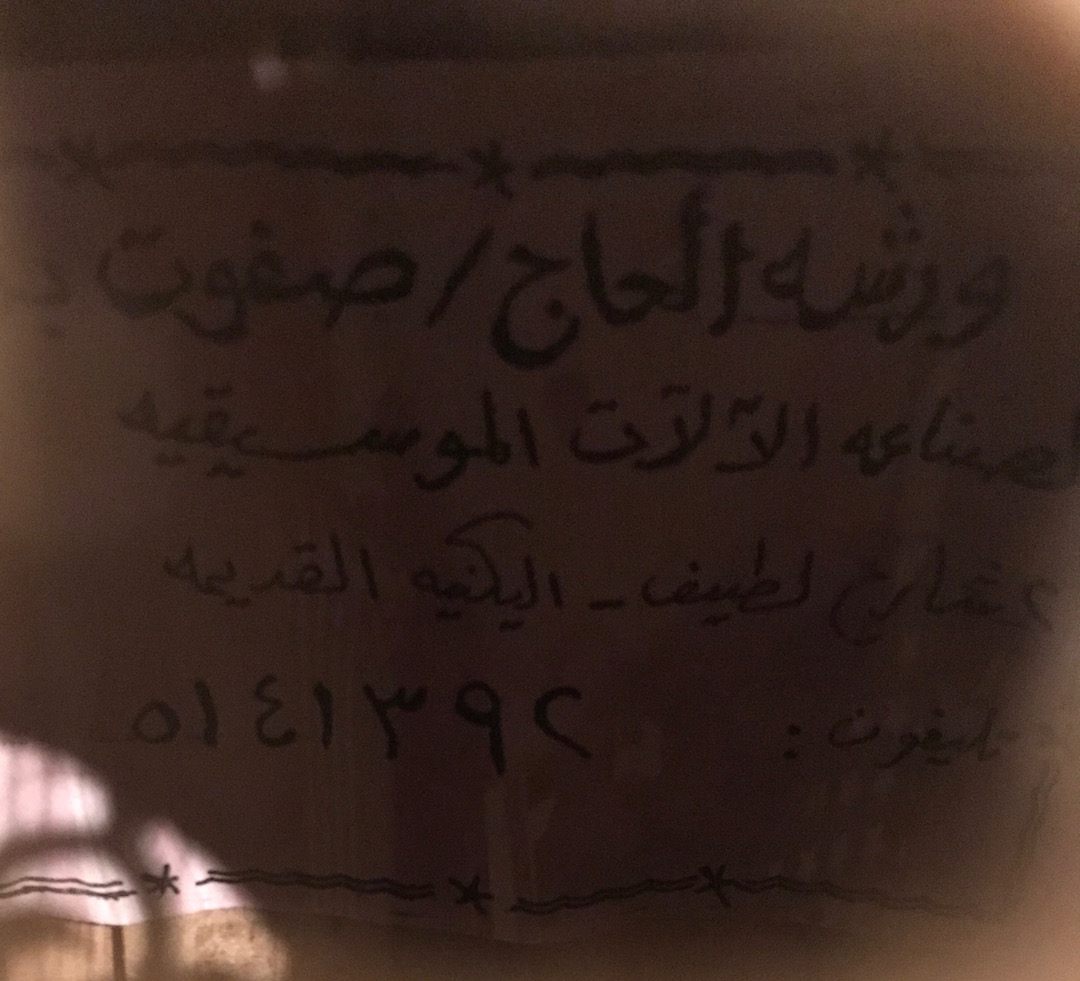 ورشه ألحاج / صفوت
صناعه الآلآت الموسيقيه
٢ شارع لطيف - اليكنيه القديمه
تليفون : ٥١٤١٣٩٢